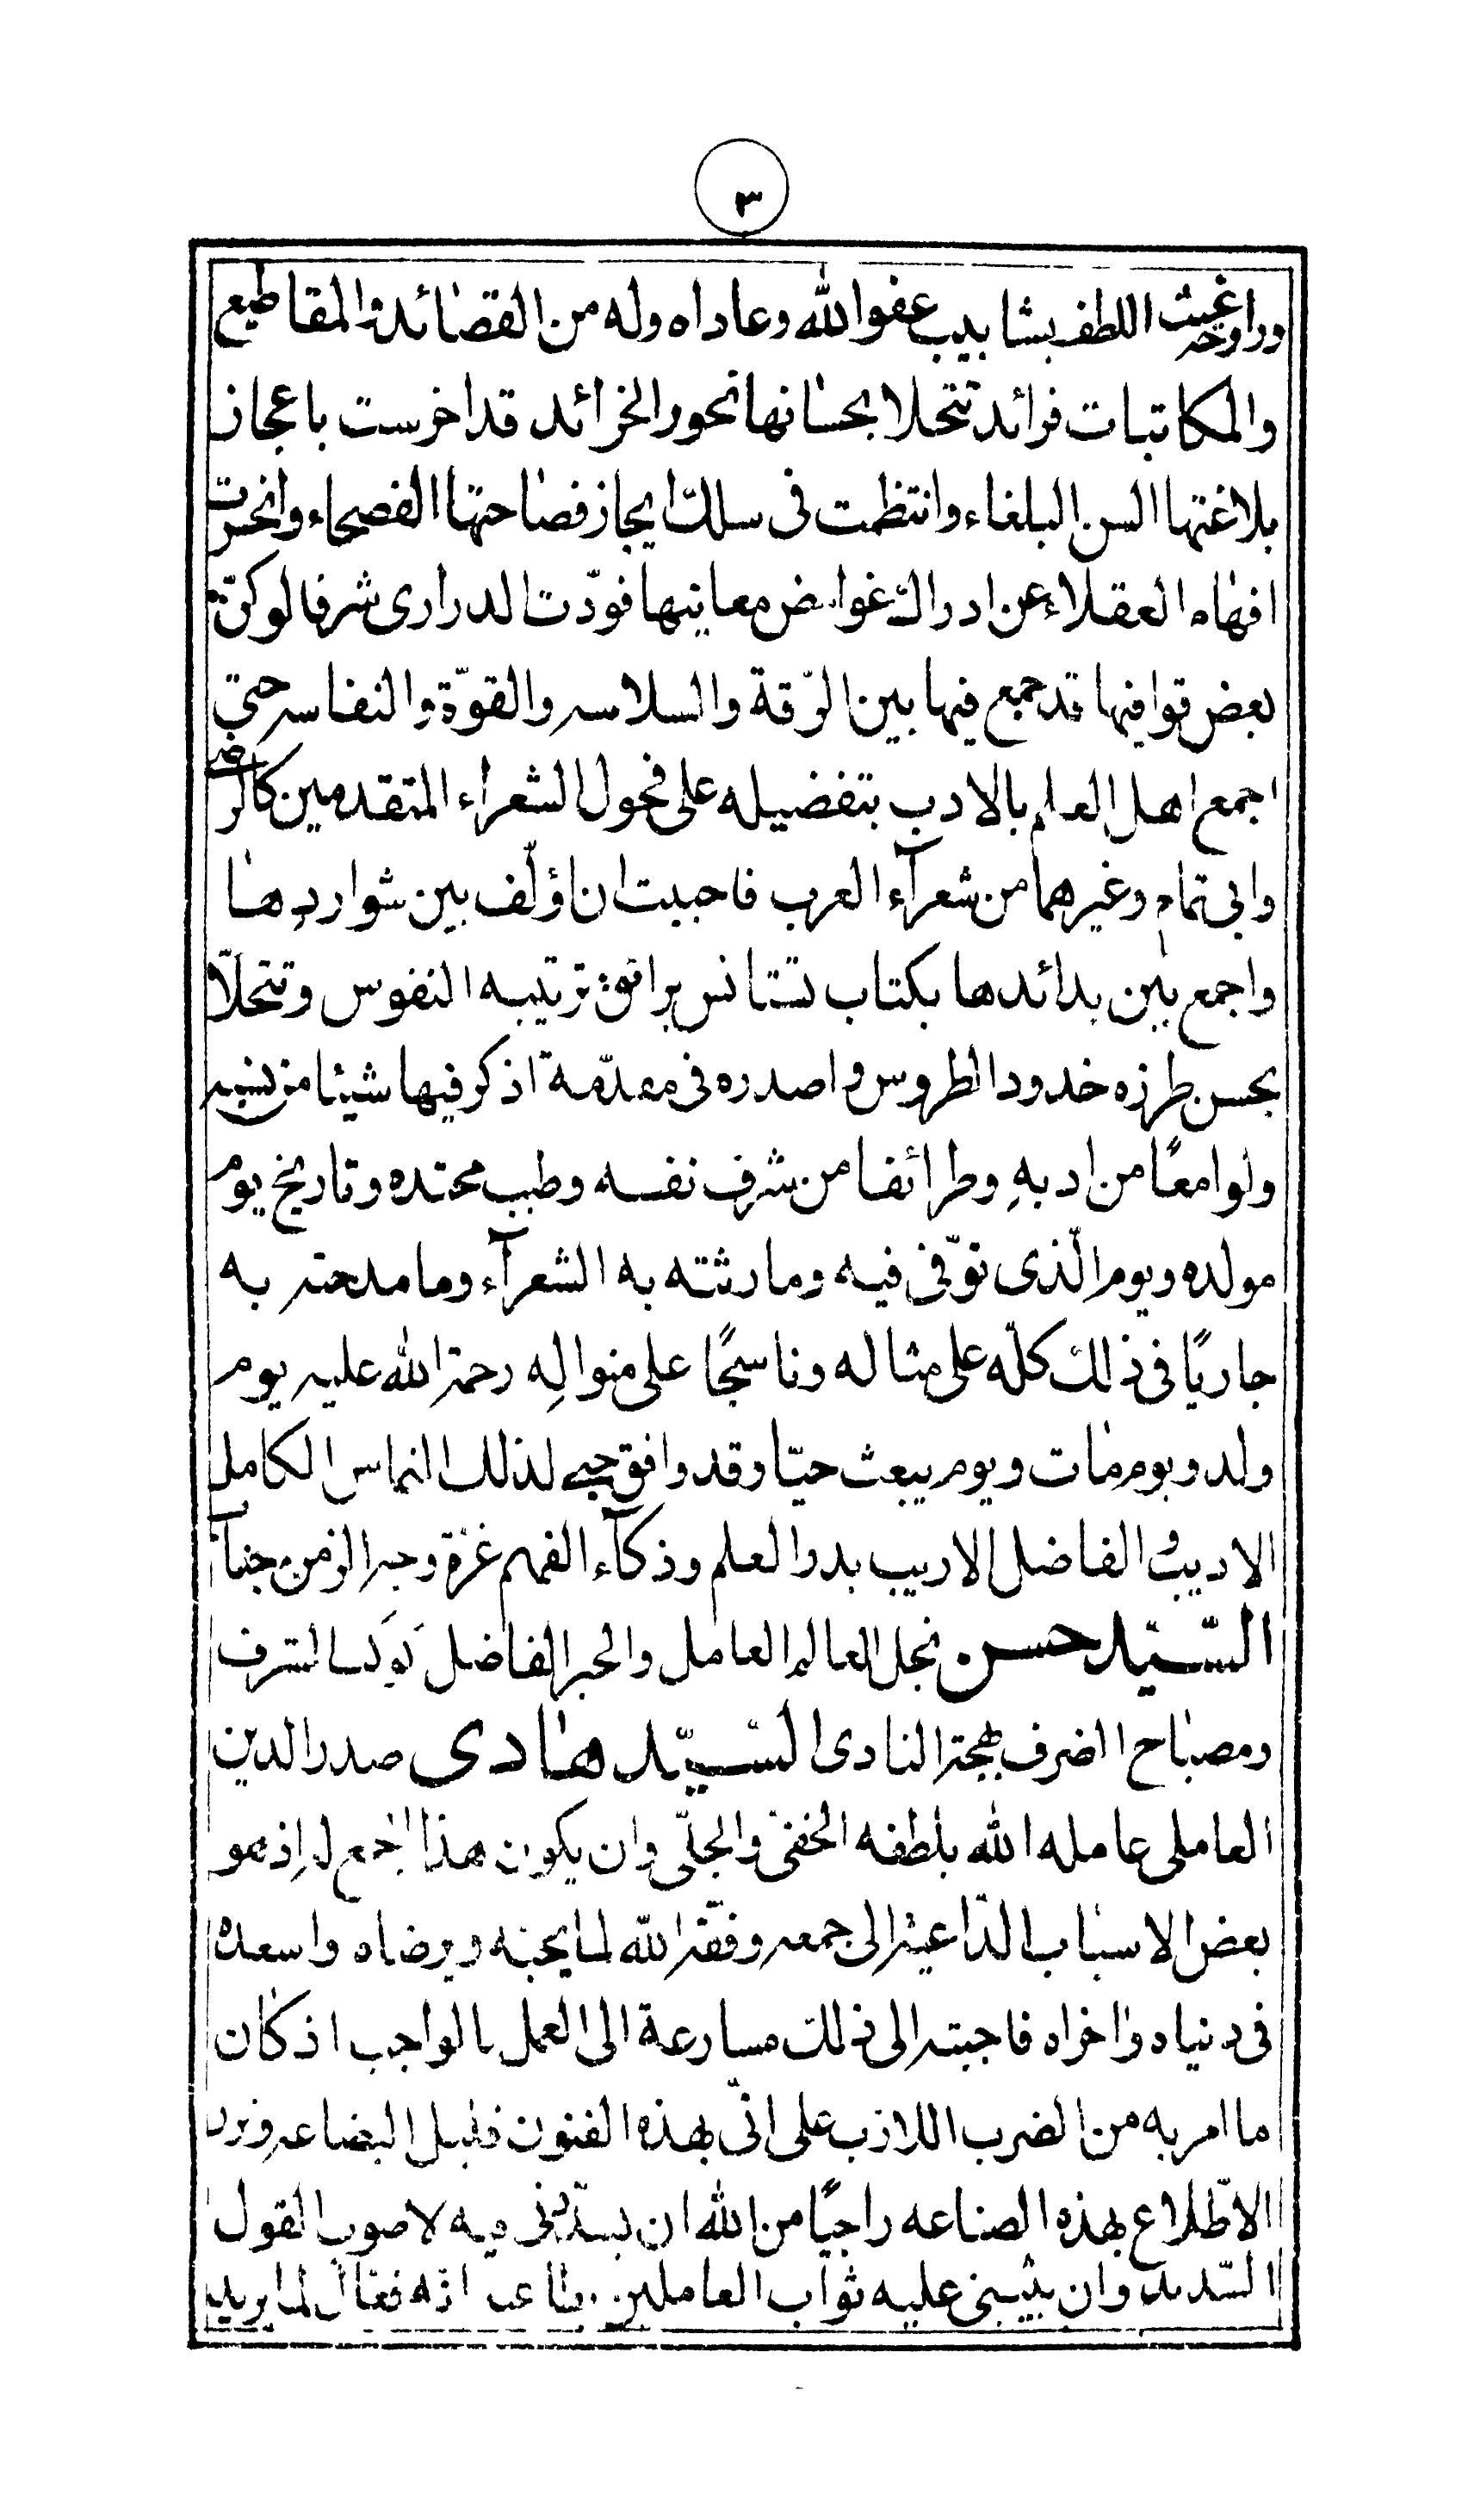 ٣
وراوحه غيث اللطف بشابيب عفو الله وغاداه وله من القصائد والمقاطيع
والمكاتبات فرائد تتحلا بحسانها نحور الخرائد قد اخرست باعجاز
بلاغتها السن البلغاء وانتظمت فى سلك ايجاز فصاحتها الفصحاء وانحسرت
افهام العقلاء عن ادراك غوامض معانيها فودّت الدرارى شرفا لو كنّ
بعض قوافيها قد جمع فيها بين الرّقة والسلاسه والقوّة والنفاسه حتى
اجمع اهل العلم بالادب بتفضيله على فحول الشعراء المتقدمين كالرضى
وابى تمام وغيرهما من شعرآء العرب فاحببت ان اؤلّف بين شواردها
واجمع بين بدائدها بكتاب تستانس برائق ترتيبه النفوس وتتحلّا
بحسن طرزه خدود الطروس واصدره فى مقدّمة اذكر فيها شيئا من نسبه
ولوامعًا من ادبهِ وطرائفا من شرف نفسه وطيب محتده وتاريخ يوم
مولده ويوم الّذى توّفى فيه وما رثته به الشعرآء وما مدحته به
جاريًا فى ذلك كلّه على مثاله وناسجًا على منوالِه رحمة الله عليه يوم
ولد ويوم مات ويوم يبعث حيّا وقد وافق حبى لذلك التماس الكامل
الاديب والفاضل الاريب بدر العلم وذكآء الفهم غرة وجه الزمن جناب
السّيّد حسن نجل العالم العامل والحبر الفاضل كوكب الشرف
ومصباح الغرف بهجة النادى السّيّد هادى صدر الدين
العاملى عامله الله بلطفه الخفى والجلّى وان يكون هذا الجمع له اذ هو
بعض الاسباب الدّاعية الى جمعه وفقّه الله لما يحبّه ويرضاه واسعده
فى دنياه واخراه فاجبته الى ذلك مسارعة الى العمل بالواجب اذ كان
ما امر به من الضرب اللازب على انّى بهذه الفنون قليل البضاعه ونزر
الاطّلاع بهذه الصناعه راجيًا من الله ان يسدّدنى فيه لاصوب القول
السّديد وان يثيبنى عليه ثواب العاملين انّه فعال لما يريد